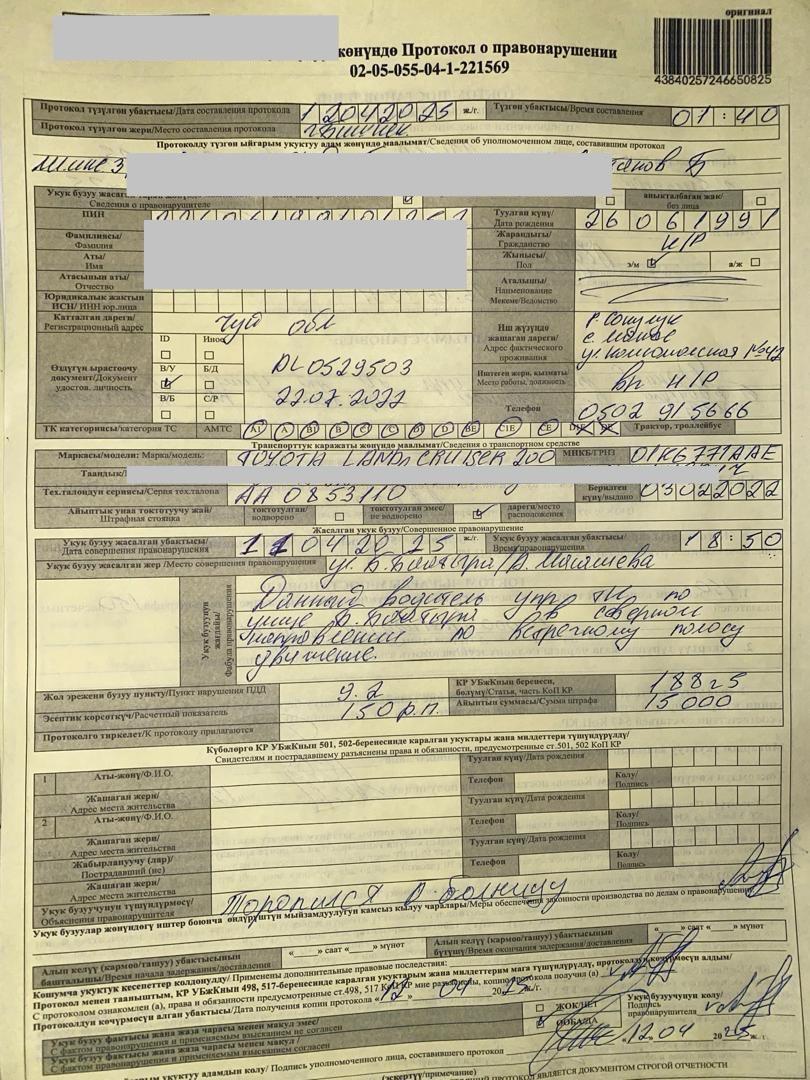 оригинал
көнүндө Протокол о правонарушении
02-05-055-04-1-221569
43840257246650825
Протокол түзүлгөн убактысы/Дата составления протокола 12042025 ж/г. Түзгөн убактысы/Время составления 01:40
Протокол түзүлгөн жери/Место составления протокола г. Бишкек
Протоколду түзгөн ыйгарым укуктуу адам жөнүндө маалымат/Сведения об уполномоченном лице, составившим протокол
Б
Укук бузуу жасаган
Сведения о правонарушителе
аныкталбаган жак/
без лица
ПИН
Туулган күнү/
Дата рождения 26061991
Фамилиясы/
Фамилия
Жарандыгы/
Гражданство К/Р
Аты/
Имя
Жынысы/
Пол э/м а/ж
Атасынын аты/
Отчество
Аталышы/
Наименование
Мекеме/Ведомство
Юридикалык жактын
ИСН/ ИНН юр.лица
Катталган дареги/
Регистрационный адрес Чуй обл
Иш жүзүндө
жашаган дареги/
Адрес фактического
проживания
р. Сокулук
ул. Комсомольская №42
Өздүгүн ырастоочу
документ/Документ
удостов. личность
ID Иное
В/У Б/Д
В/Б С/Р
DL0529503
22.07.2022
Иштеген жери, кызматы/
Место работы, должность вр Н/Р
Телефон 0502 915666
ТК категориясы/категория ТС АМТС A1 A B1 B C1 C D1 D BE C1E CE D1E DE Трактор, троллейбус
Транспорттук каражаты жөнүндө маалымат/Сведения о транспортном средстве
Маркасы/модели: Марка/модель: TOYOTA LAND CRUISER 200 МНКБ/ГРНЗ 01KG771AAE
Таандык/
Тех.талондун сериясы/Серия тех.талона АА 0853110 Берилген
күнү/выдано 03022022
Айыптык унаа токтотуучу жай/
Штрафная стоянка
токтотулган/
водворено
токтотулган эмес/
не водворено
дареги/место
расположения
Жасалган укук бузуу/Совершенное правонарушение
Укук бузуу жасалган убактысы/
Дата совершения правонарушения 11042025 ж/г.
Укук бузуу жасалган убактысы/
Время правонарушения 18:50
Укук бузуу жасалган жер /Место совершения правонарушения ул. Б. Баатыра/
Укук бузуунун
жагдайы/
Фабула правонарушения
Данный водитель упр ТС по
улице Б. Баатыра в северном
направлении по встречному полосу
движение.
Жол эрежени бузуу пункту/Пункт нарушения ПДД 9.2
КР УБжКнын беренеси,
бөлүмү/Статья, часть КоП КР 188ч5
Эсептик көрсөткүч/Расчетный показатель 150 р.п. Айыптын суммасы/Сумма штрафа 15 000
Протоколго тиркелет/К протоколу прилагаются
Күбөлөргө КР УБжКнын 501, 502-беренесинде каралган укуктары жана милдеттери түшүндүрүлдү/
Свидетелям и пострадавшему разъяснены права и обязанности, предусмотренные ст.501, 502 КоП КР
1 Аты-жөнү/Ф.И.О. Туулган күнү/Дата рождения
Жашаган жери/
Адрес места жительства Телефон Колу/
Подпись
2 Аты-жөнү/Ф.И.О. Туулган күнү/Дата рождения
Жашаган жери/
Адрес места жительства Телефон Колу/
Подпись
Жабырлануучу (лар)/
Пострадавший (не) Туулган күнү/Дата рождения
Жашаган жери/
Адрес места жительства Телефон Колу/
Подпись
Укук бузуучунун түшүндүрмөсү/
Объяснения правонарушителя Торопился в больницу
Укук бузуулар жөнүндөгү иштер боюнча өндүрүштүн мыйзамдуулугун камсыз кылуу чаралары/Меры обеспечения законности производства по делам о правонарушениях
Алып келүү (кармоо/ташуу) убактысынын
башталышы/Время начала задержания/доставления « » саат « » мүнөт
Алып келүү (кармоо/ташуу) убактысынын
бүтүшү/Время окончания задержания/доставления « » саат « » мүнөт
Кошумча укуктук кесепеттер колдонулду/ Применены дополнительные правовые последствия:
Протокол менен тааныштым, КР УБжКнын 498, 517-беренесинде каралган укуктарым жана милдеттерим мага түшүндүрүлдү, протоколдун көчүрмөсүн алдым/
С протоколом ознакомлен (а), права и обязанности предусмотренные ст.498, 517 КоП КР мне разъяснены, копию протокола получил (а)
Протоколдун көчүрмөсүн алган убактысы/Дата получения копии протокола «12» 04 2025 ж/г.
Укук бузуу фактысы жана жаза чарасы менен макул эмес/
С фактом правонарушения и применяемым взысканием не согласен
ЖОК/НЕТ
Укук бузуу фактысы жана жаза чарасы менен макул /
С фактом правонарушения и применяемым взысканием согласен
ООБА/ДА
Укук бузуучунун колу/
Подпись
правонарушителя
«12» 04 2025 ж/г.
укуктуу адамдын колу/ Подпись уполномоченного лица, составившего протокол
(эскертүү/примечание)
ПРОТОКОЛ ЯВЛЯЕТСЯ ДОКУМЕНТОМ СТРОГОЙ ОТЧЕТНОСТИ